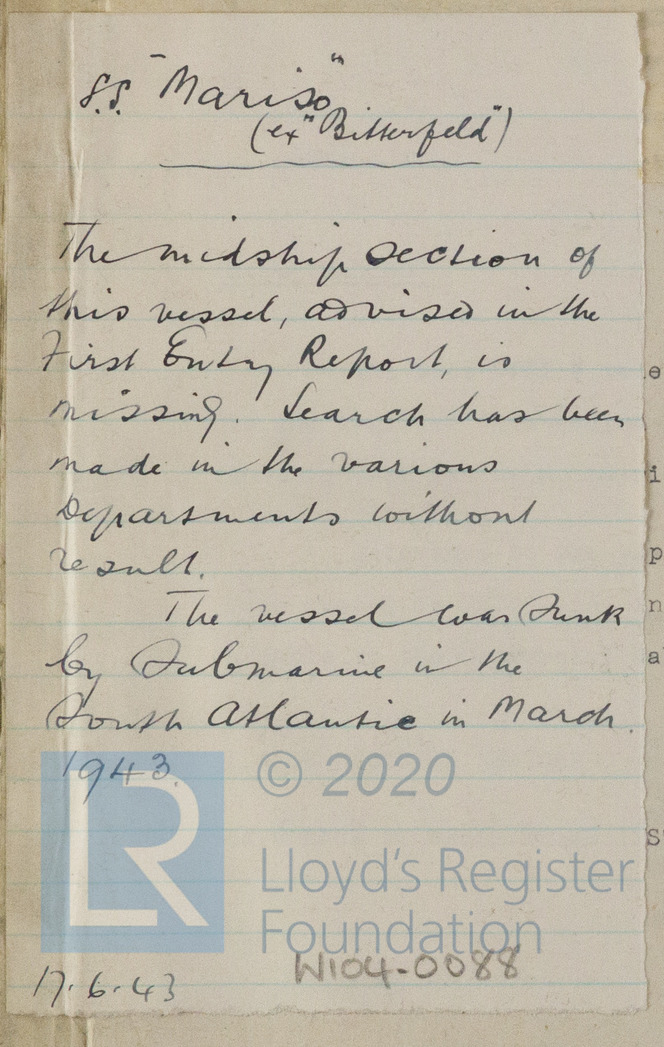 S.S. "Mariso"
(ex "Bitterfeld")
The midship section of
this vessel, advised in the
First Entry Report, is
missing. Search has been
made in the various
Departments without
result.
The vessel was sunk
by Submarine in the
South Atlantic in March.
1943.
© 2020
LR
Lloyd's Register
Foundation
W104-0088
17.6.43
e
i
p
n
a
S